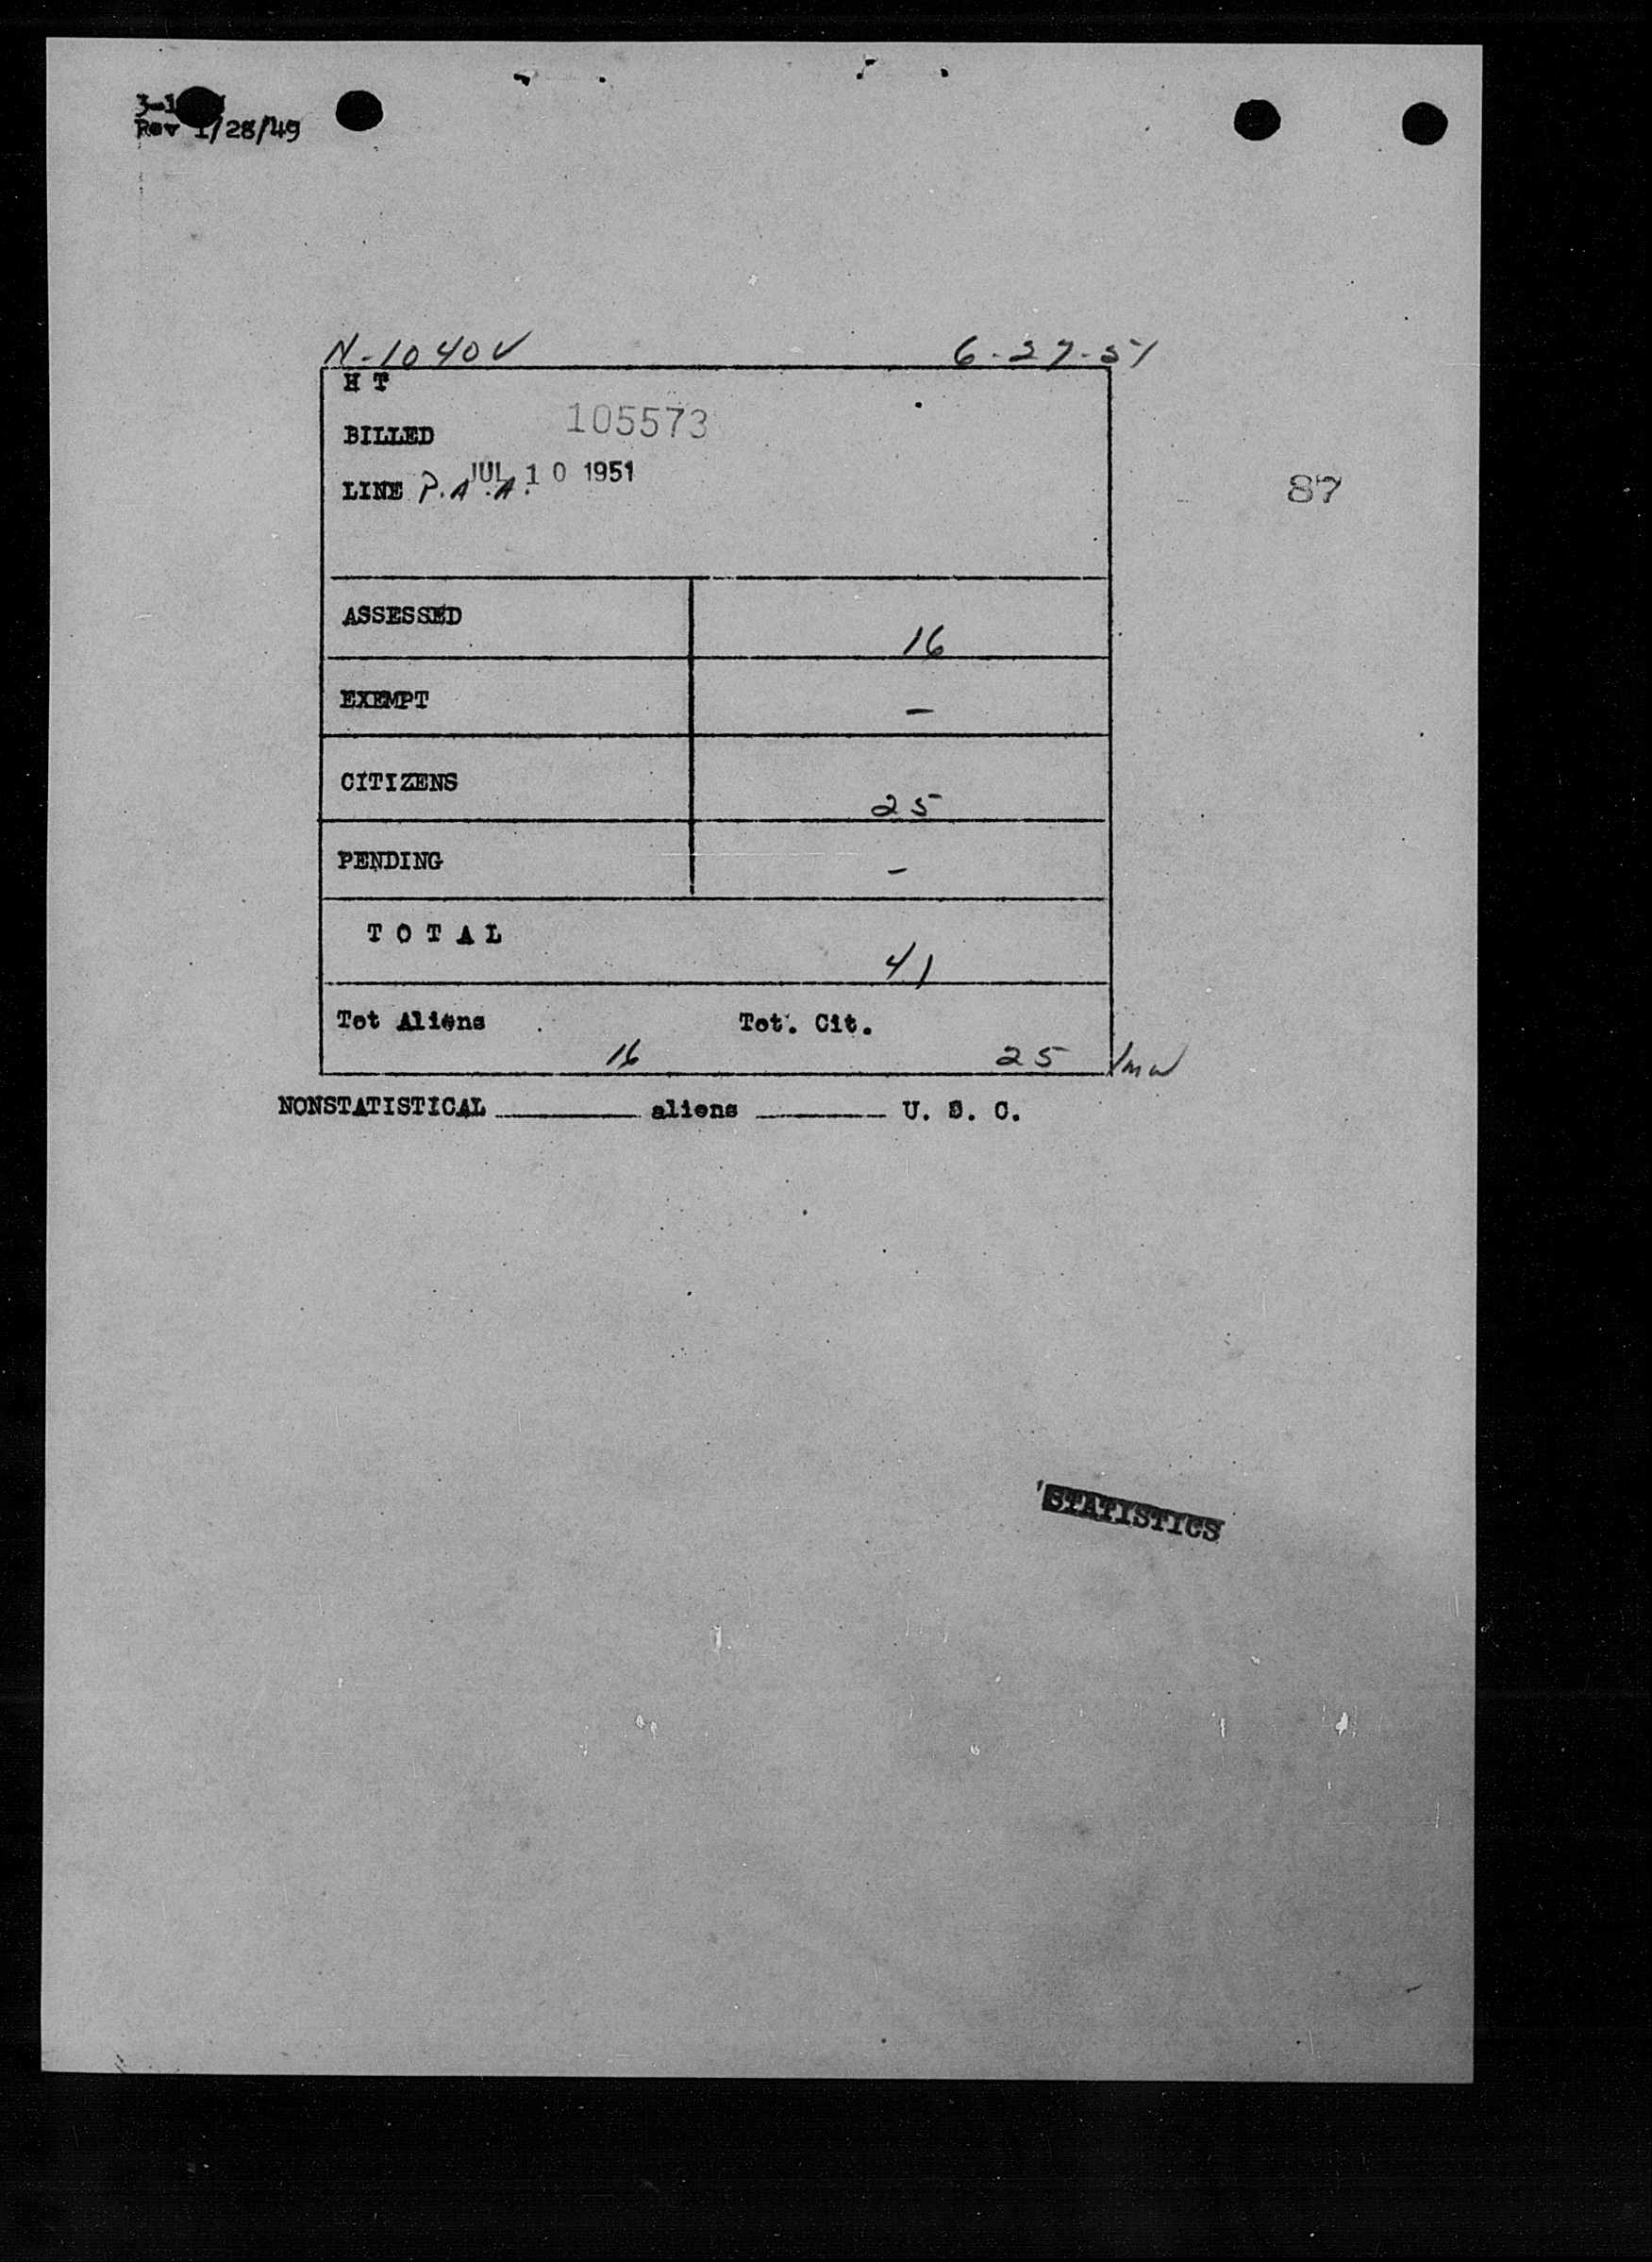 Rev 1/28/49
N-1040V 6-27-51
H T
BILLED 105573
JUL 10 1951
LINE P.A.A.
87
ASSESSED 16
EXEMPT -
CITIZENS 25
PENDING -
TOTAL 41
Tot Aliens Tot. Cit.
16 25
NONSTATISTICAL aliens U. S. C.
STATISTICS